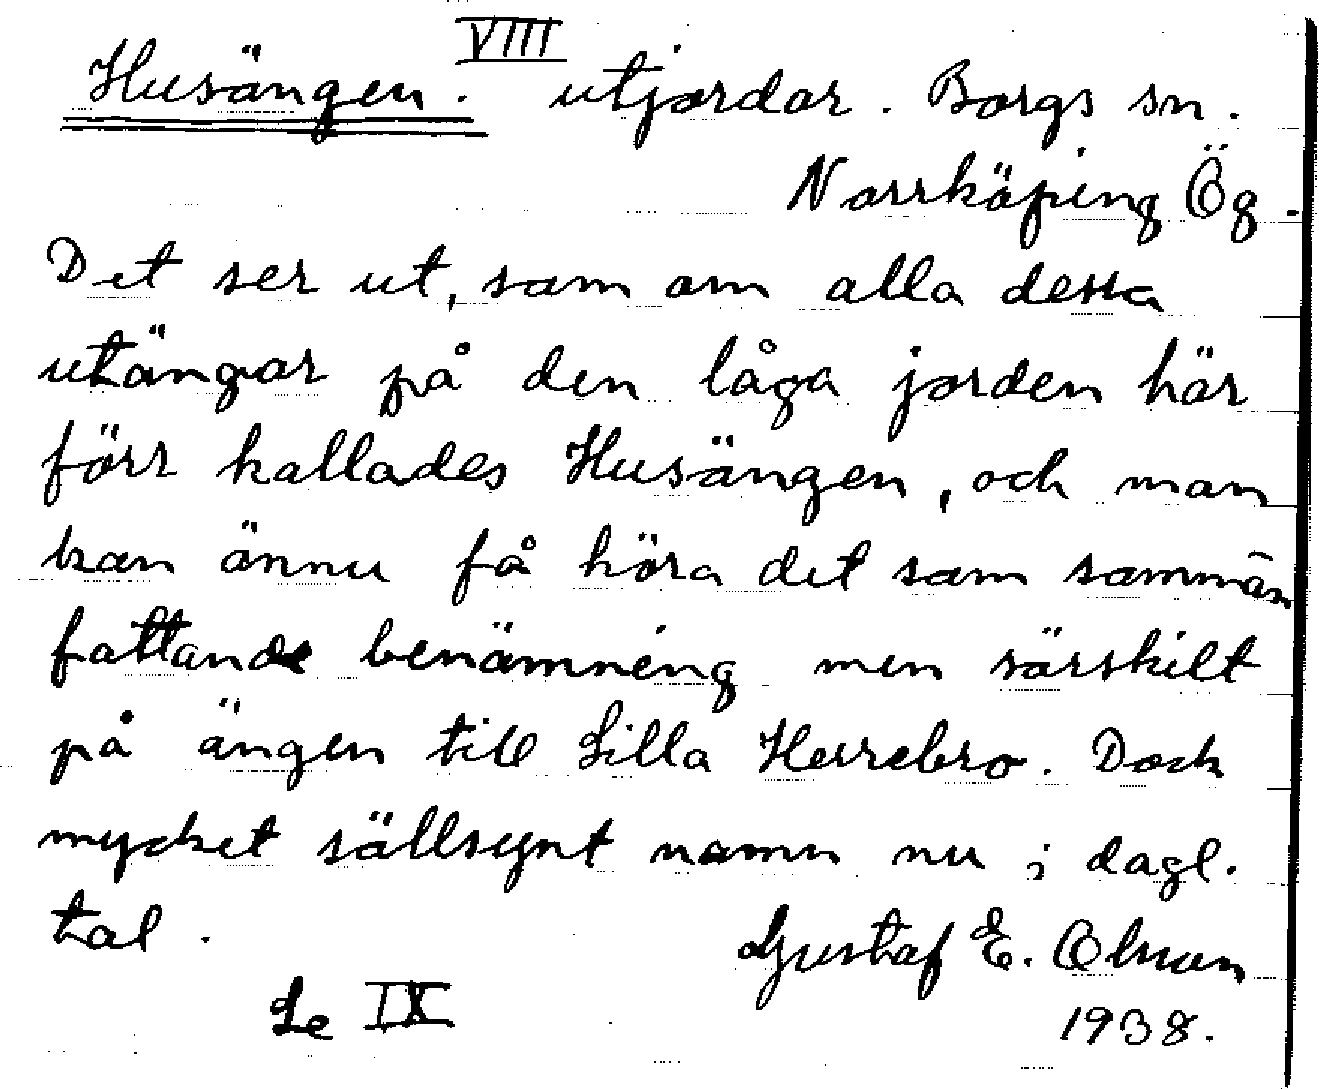 Husängen. VIII utjordar. Borgs sn.
Norrköping Ög.
Det ser ut, som om alla dessa
utängar på den låga jorden här
förr kallades Husängen, och man
kan ännu få höra det som samman
fattande benämning men särskilt
på ängen till Lilla Herrebro. Dock
mycket sällsynt namn nu i dagl.
tal.
Gustaf E. Olsson
Se IX
1938.